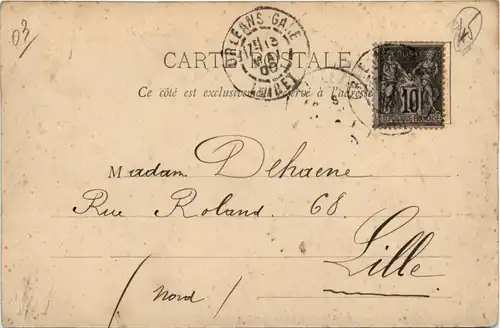 03
ORLEANS GARE
LOIRET
CARTE POSTALE
Ce côté est exclusivement réservé à l'adresse
10
REPUBLIQUE FRANCAISE
Madam Dehaene
Rue Roland. 68.
Lille
(Nord)